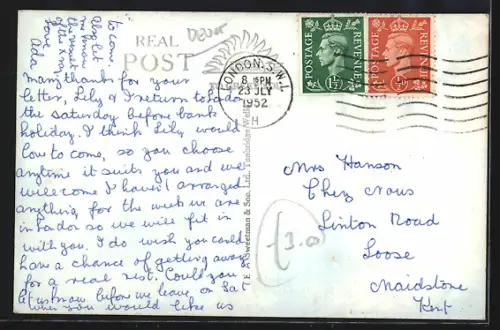 to come.
Also let
me know
the meat
of the x m
Love
Ada
Dover
REAL
POST
LONDON. S.W.1.
8 PM
23 JLY
1952
H
POSTAGE
REVENUE
1½D
POSTAGE
REVENUE
½D
Many thanks for your
letter, Lily & I return to Lado
the Saturday before bank
holiday. I think Lily would
love to come, so you choose
anytime it suits you and we
will come I haven't arranged
anything for the week we are
in Lado so we will fit in
with you. I do wish you could
have a chance of getting away
for a real rest. Could you
let us know before we leave on Sat
when you would like us
E A Sweetman & Son. Ltd., Tunbridge Wells
Mrs Hanson
Chez Nous
Linton Road
Loose
Maidstone
Kent
£3.0